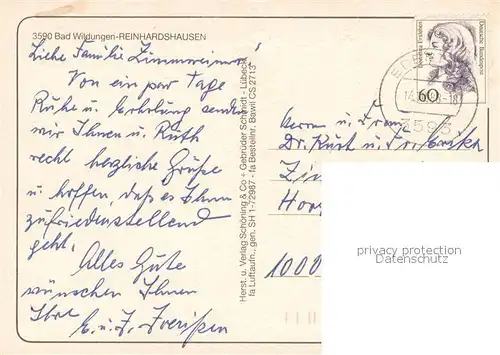 3590 Bad Wildungen-REINHARDSHAUSEN
Liebe Familie
Von ein par Tage
Ruhe u. Erholung senden
wir Ihnen u. Ruth
recht herzliche Grüße
u. hoffen, daß es Ihnen
zufriedenstellend
geht.
Alles Gute
wünschen Ihnen
Ihre
E. u. J.
Herst. u. Verlag Schöning & Co + Gebrüder Schmidt - Lübeck
fa Luftaufn., gen. SH 1-72967 - fa Bestellnr. Bawil CS 2713
Deutsche Bundespost
60
3593
Herrn u. Frau
Dr. Kurt u.
1000
privacy protection
Datenschutz